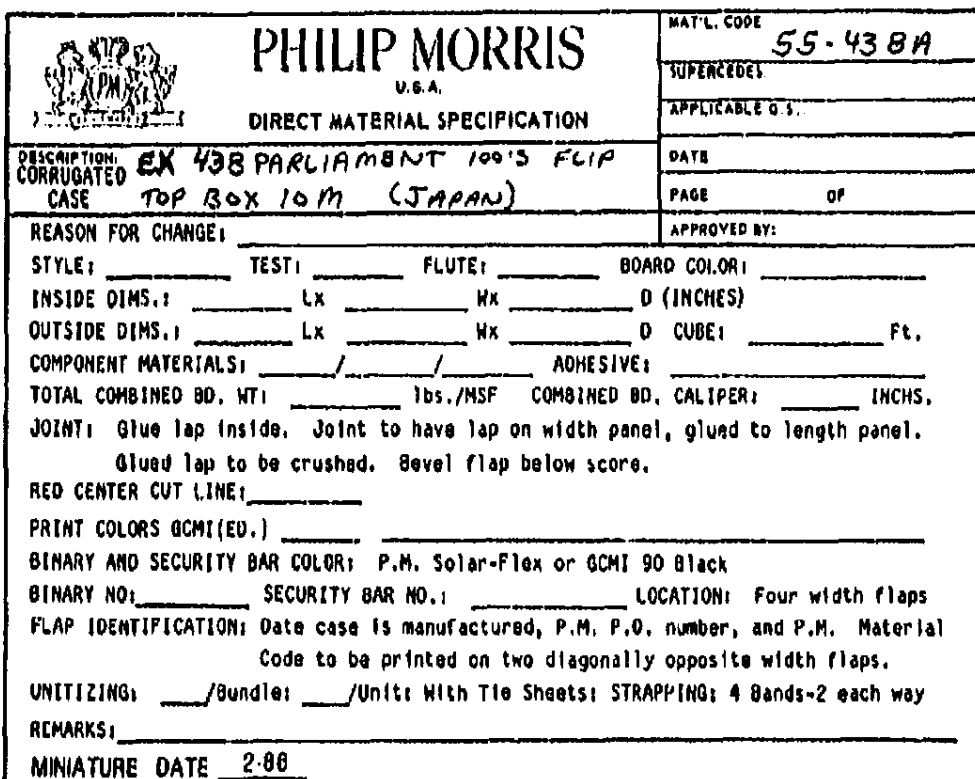 PHILIP MORRIS
U.S.A.
DIRECT MATERIAL SPECIFICATION
PM
MAT'L. CODE 55-438A
SUPERCEDES
APPLICABLE Q.S.
DESCRIPTION: EX 438 PARLIAMENT 100'S FLIP
CORRUGATED CASE TOP BOX 10M (JAPAN)
DATE
PAGE OF
APPROVED BY:
REASON FOR CHANGE:
STYLE: TEST: FLUTE: BOARD COLOR:
INSIDE DIMS.: Lx Wx D (INCHES)
OUTSIDE DIMS.: Lx Wx D CUBE: Ft.
COMPONENT MATERIALS: / / ADHESIVE:
TOTAL COMBINED BD. WT: lbs./MSF COMBINED BD. CALIPER: INCHS.
JOINT: Glue lap inside. Joint to have lap on width panel, glued to length panel.
Glued lap to be crushed. Bevel flap below score.
RED CENTER CUT LINE:
PRINT COLORS GCMI(ED.)
BINARY AND SECURITY BAR COLOR: P.M. Solar-Flex or GCMI 90 Black
BINARY NO: SECURITY BAR NO.: LOCATION: Four width flaps
FLAP IDENTIFICATION: Date case is manufactured, P.M. P.O. number, and P.M. Material
Code to be printed on two diagonally opposite width flaps.
UNITIZING: /Bundle: /Unit: With Tie Sheets: STRAPPING: 4 Bands-2 each way
REMARKS:
MINIATURE DATE 2-88